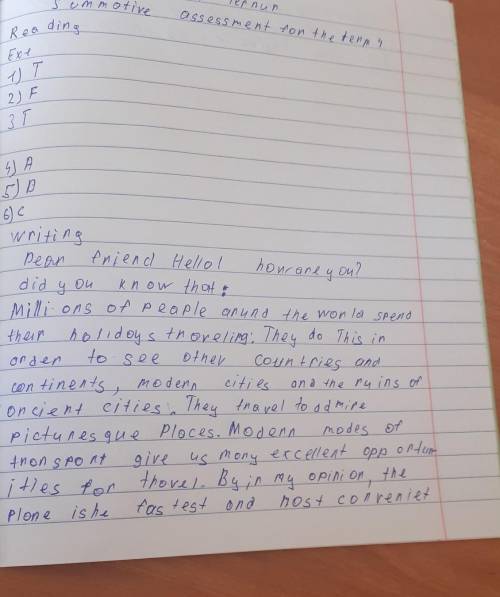 Summative assessment for the term 4
Reading
Ex1
1) T
2) F
3 T
4) A
5) B
6) C
Writing
Dear friend Hello! how are you?
did you know that:
Millions of peaple arund the world spend
their holidays traveling. They do This in
order to see other countries and
continents, modern cities and the ruins of
ancient cities. They travel to admire
picturesque places. Modern modes of
transport give us many excellent opportun
ities for thavel. By in my opinion, the
plane is he fastest and most conveniet